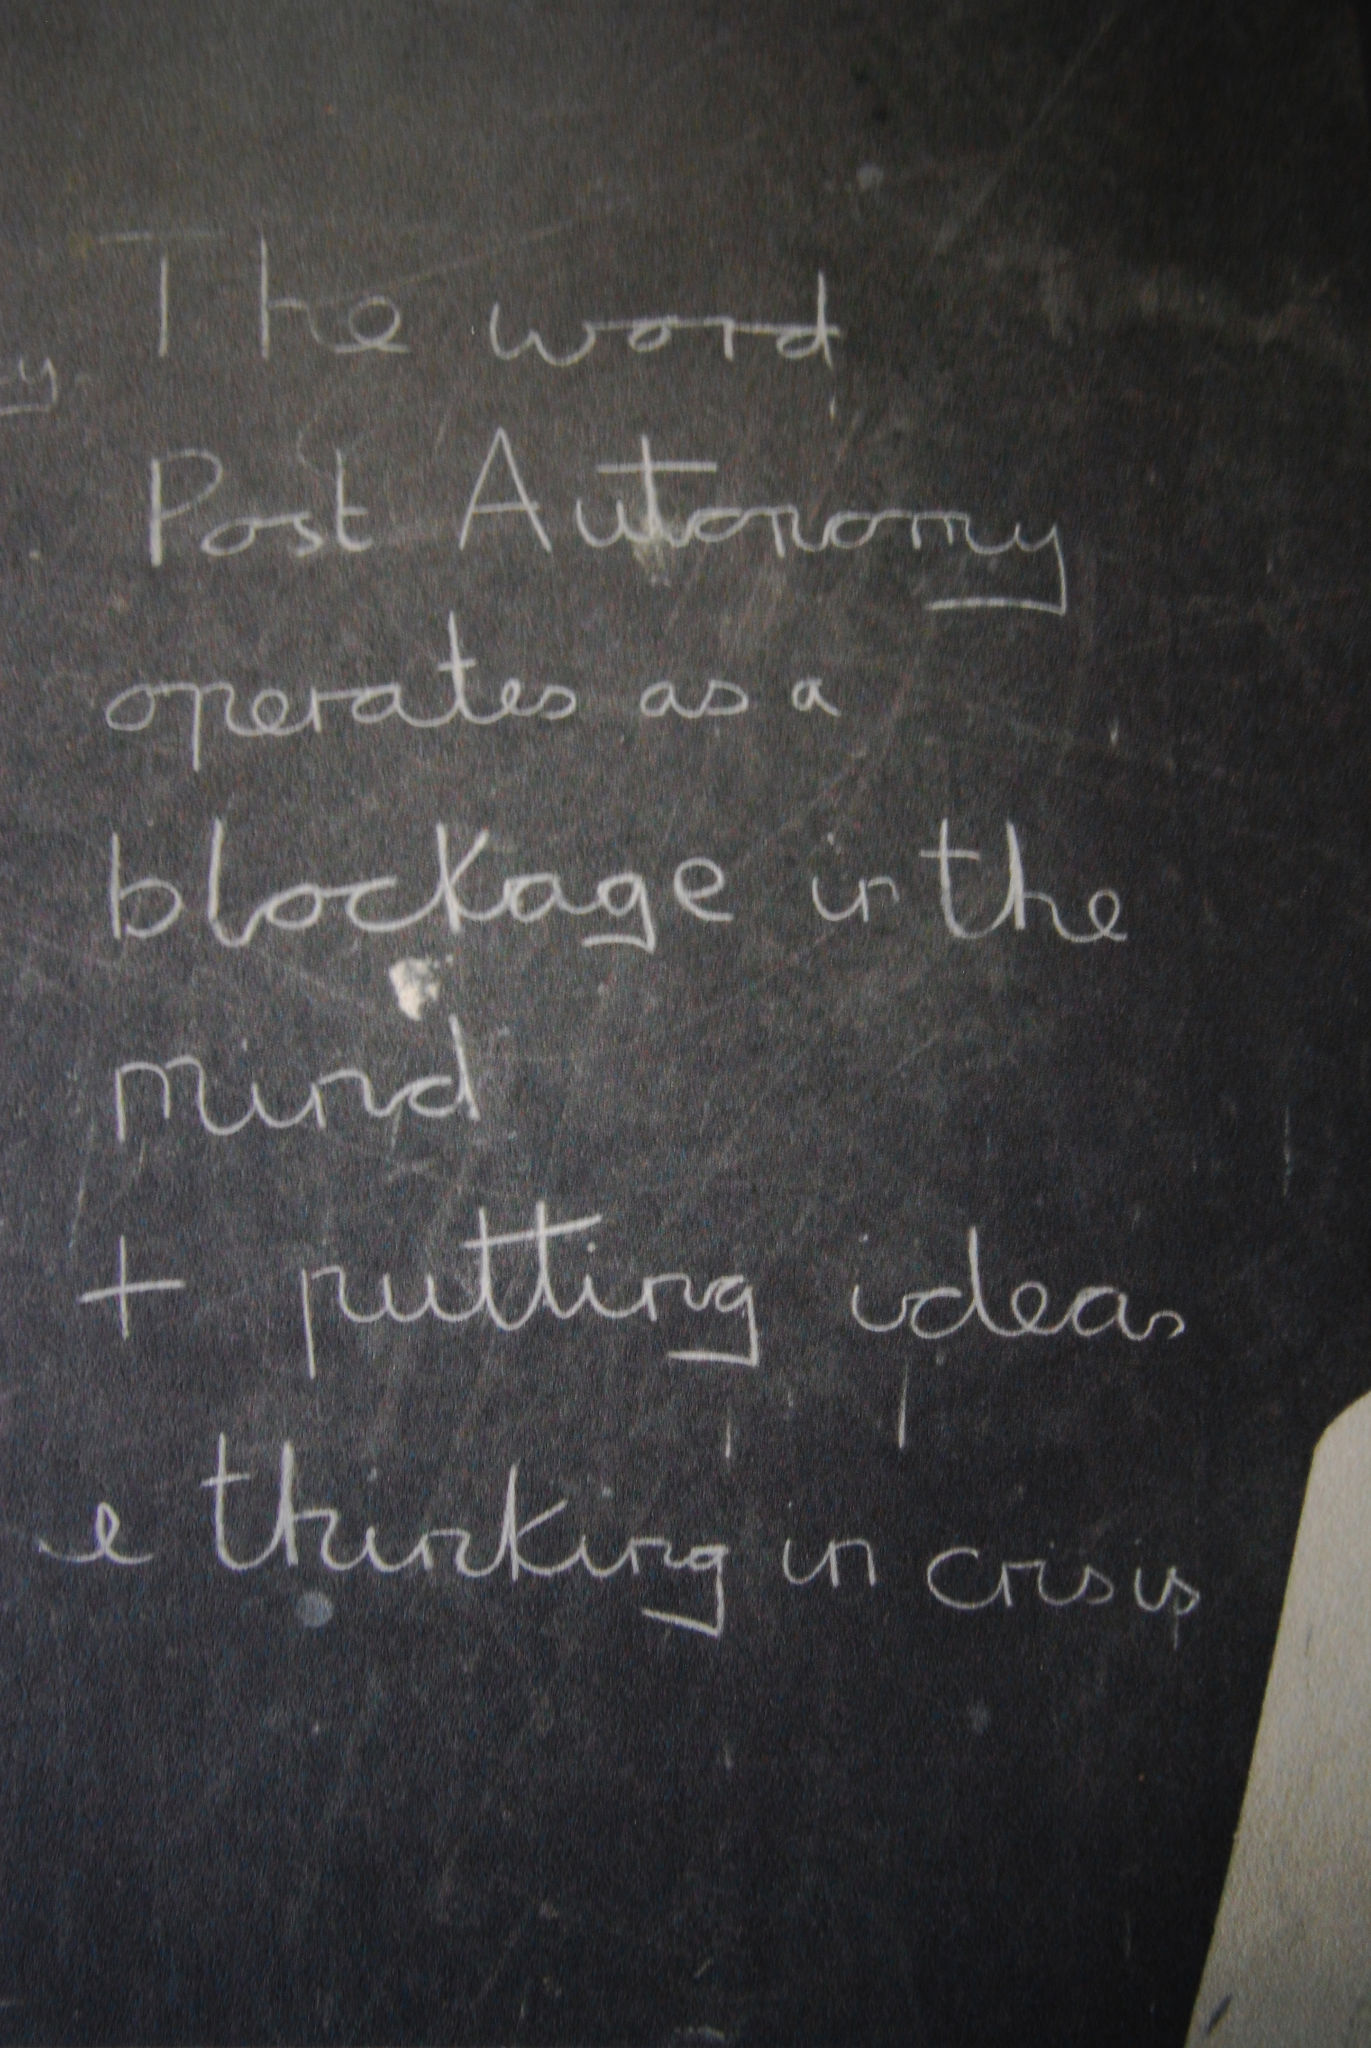 The word
Post Autonomy
operates as a
blockage in the
mind
+ putting ideas
e thinking in crisis